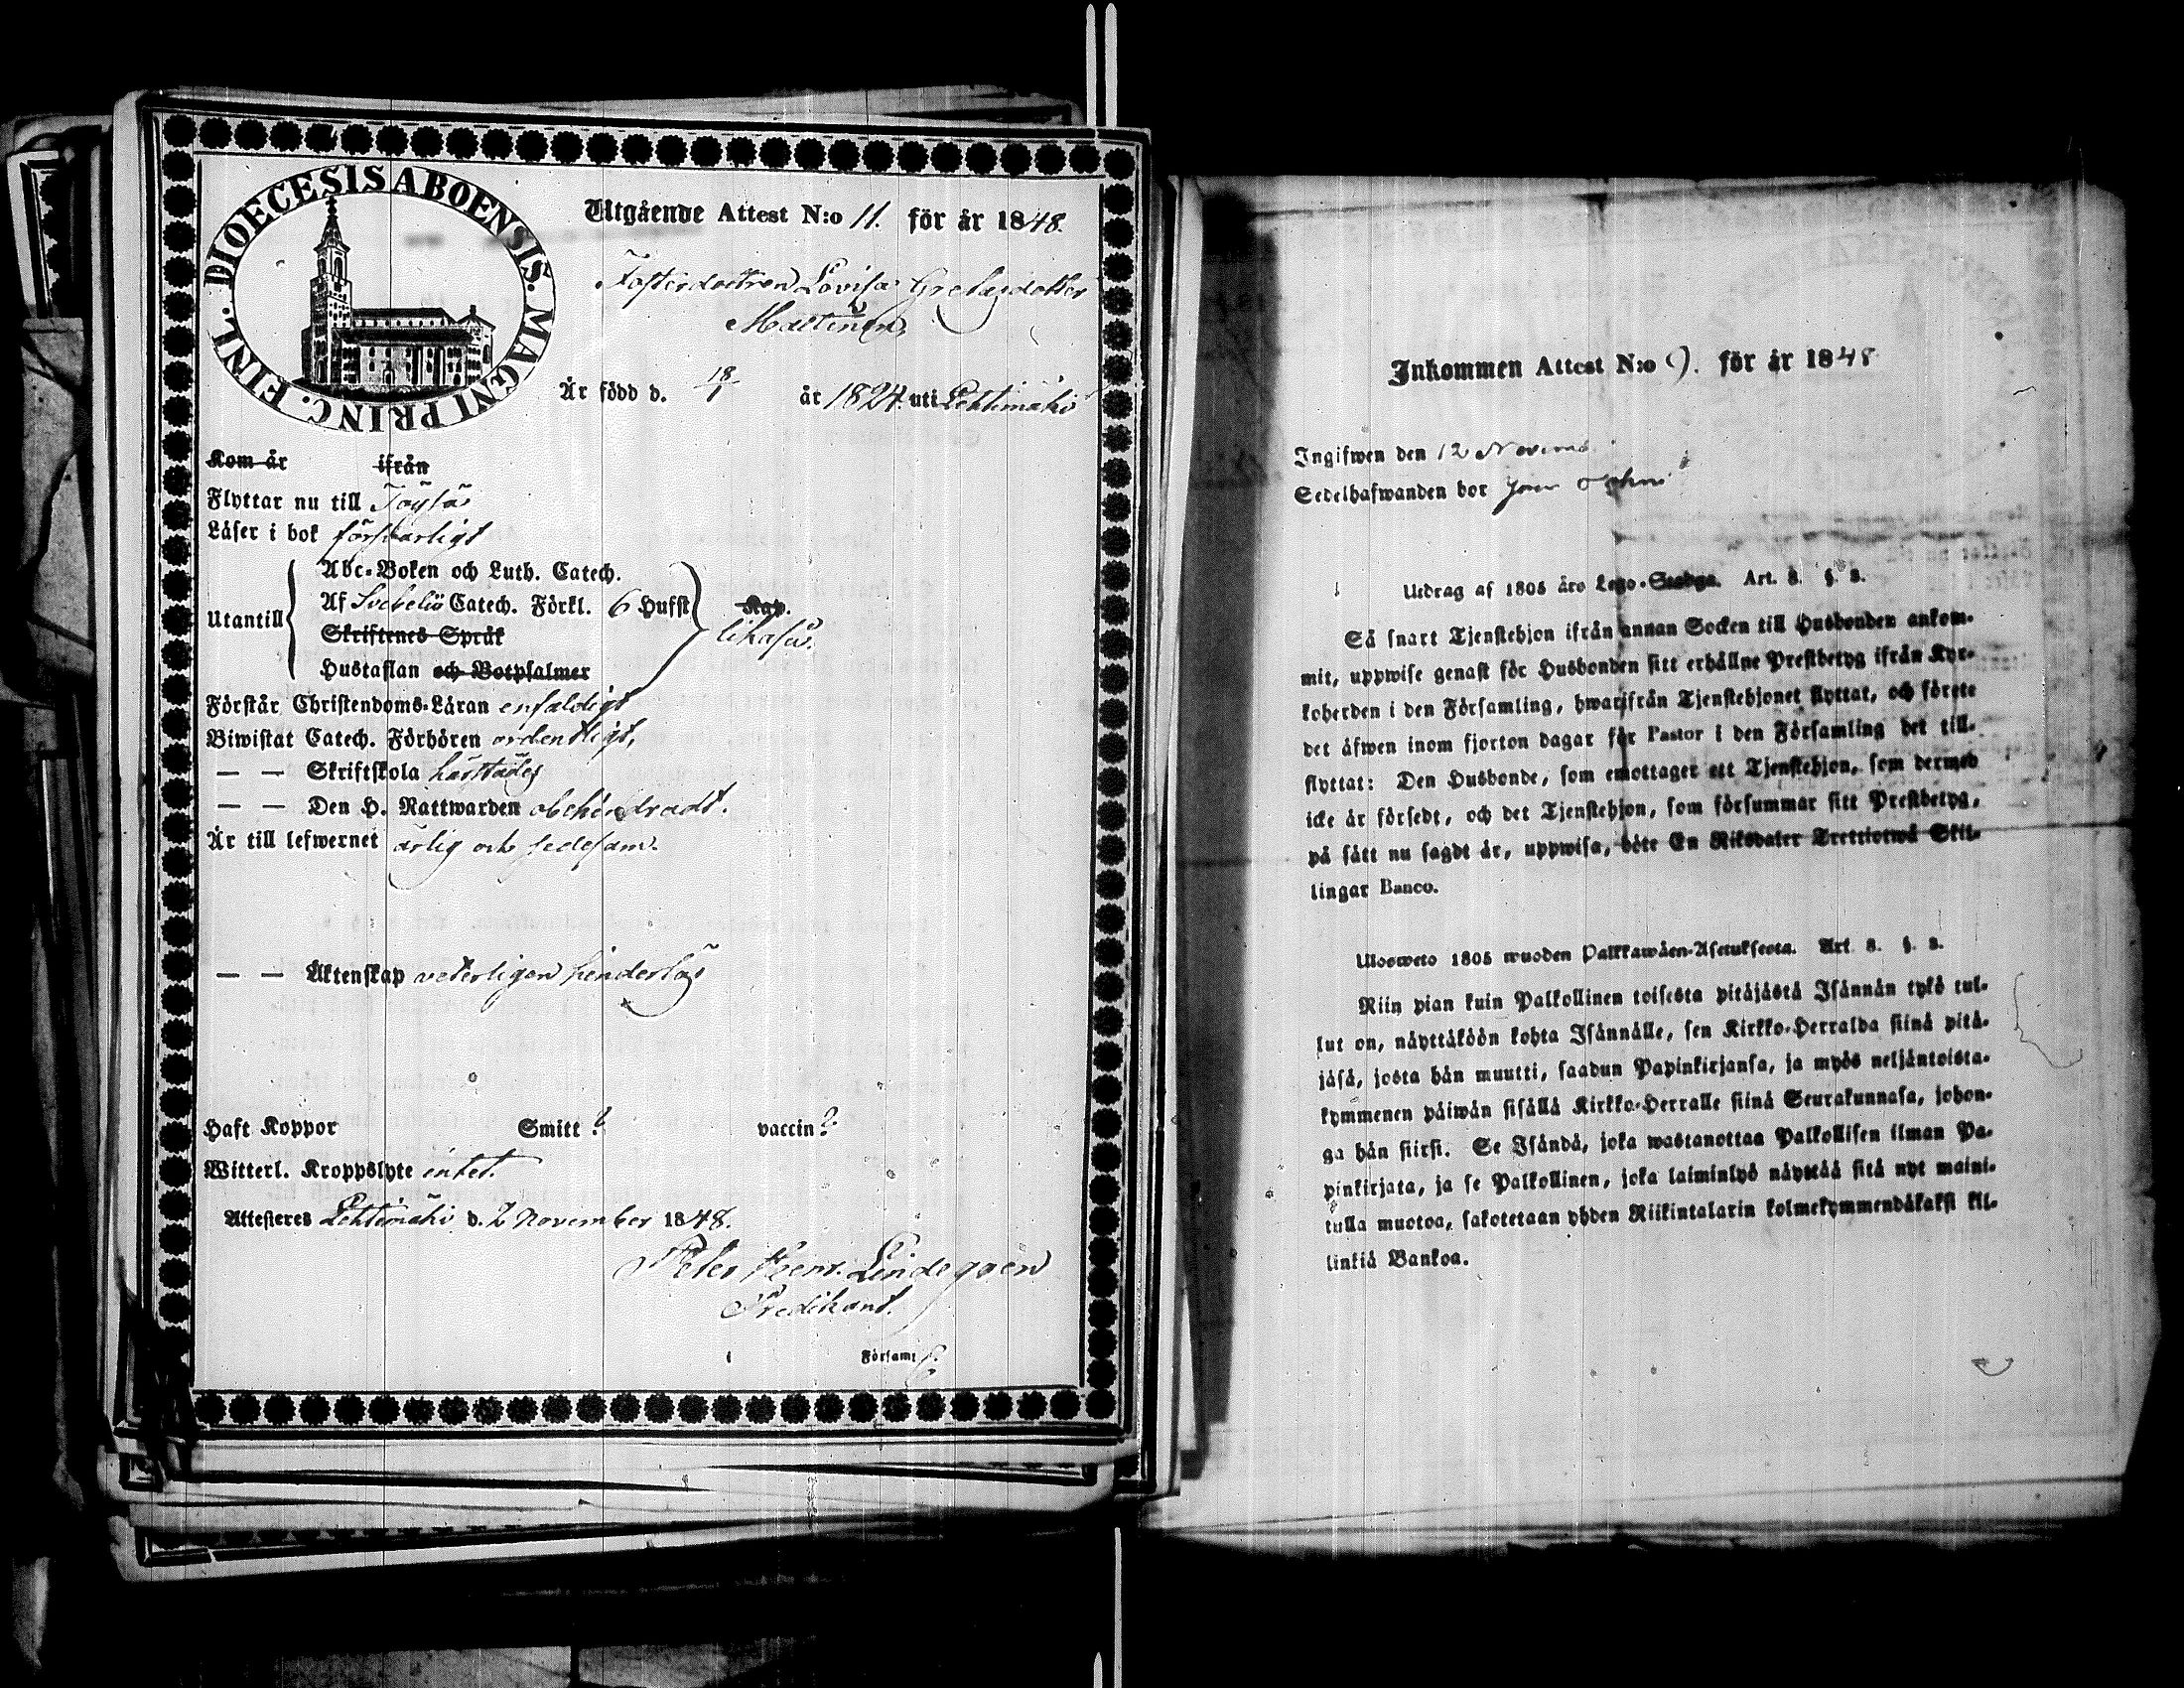 DIOECESIS ABOENSIS. MAGNI PRINC. FINL.
Utgående Attest N:o 11. för år 1848.
Fosterdottren Lovisa Gretasdotter
Är född d. 18/7 år 1824. uti Lehtimäki
Kom år ifrån
Flyttar nu till Töysä
Läser i bok försvarligt
Utantill
Abc-Boken och Luth. Catech.
Af Svebelii Catech. Förkl. 6 Hufst
Kap.
likaså.
Skriftenes Språk
Hustaflan och Botpsalmer
Förstår Christendoms-Läran enfaldigt
Biwistat Catech. Förhören ordentligt,
— — Skriftskola härstädes
— — Den H. Nattwarden obehindradt.
Är till lefwernet ärlig och sedesam.
— — Äktenskap veterligen hinderlös
Haft Koppor Smitt? vaccin?
Witterl. Kroppslyte intet.
Attesteras Lehtimäki d. 2 November 1848.
Peter Henr. Lindegrén
Predikant.
i Församl
Inkommen Attest N:o 9. för år 1848
Ingifwen den 12 Novemb
Sedelhafwanden bor
Utdrag af 1805 års Lego-Stadga. Art. 8. §. 8.
Så snart Tjenstehjon ifrån annan Socken till Husbonden ankom-
mit, uppwise genast för Husbonden sitt erhållne Prestbetyg ifrån Kyr-
koherden i den Församling, hwarifrån Tjenstehjonet flyttat, och förete
det äfwen inom fjorton dagar för Pastor i den Församling det till-
flyttat: Den Husbonde, som emottager ett Tjenstehjon, som dermed
icke är försedt, och det Tjenstehjon, som försummar sitt Prestbetyg,
på sätt nu sagdt är, uppwisa, böte En Riksdaler Trettiotwå Skil-
lingar Banco.
Ulosweto 1805 wuoden Palkkawäen-Asetuksesta. Art. 8. §. 8.
Niin pian kuin Palkollinen toisesta pitäjästä Isännän tykö tul-
lut on, näyttäköön kohta Isännälle, sen Kirkko-Herralda siinä pitä-
jäsä, josta hän muutti, saadun Papinkirjansa, ja myös neljäntoista-
kymmenen päiwän sisällä Kirkko-Herralle siinä Seurakunnasa, johon-
ga hän siirsi. Se Isändä, joka wastanottaa Palkollisen ilman Pa-
pinkirjata, ja se Palkollinen, joka laiminlyö näyttää sitä nyt maini-
tulla muotoa, sakotetaan yhden Riikintalarin kolmekymmendäkaksi kil-
linkiä Bankoa.